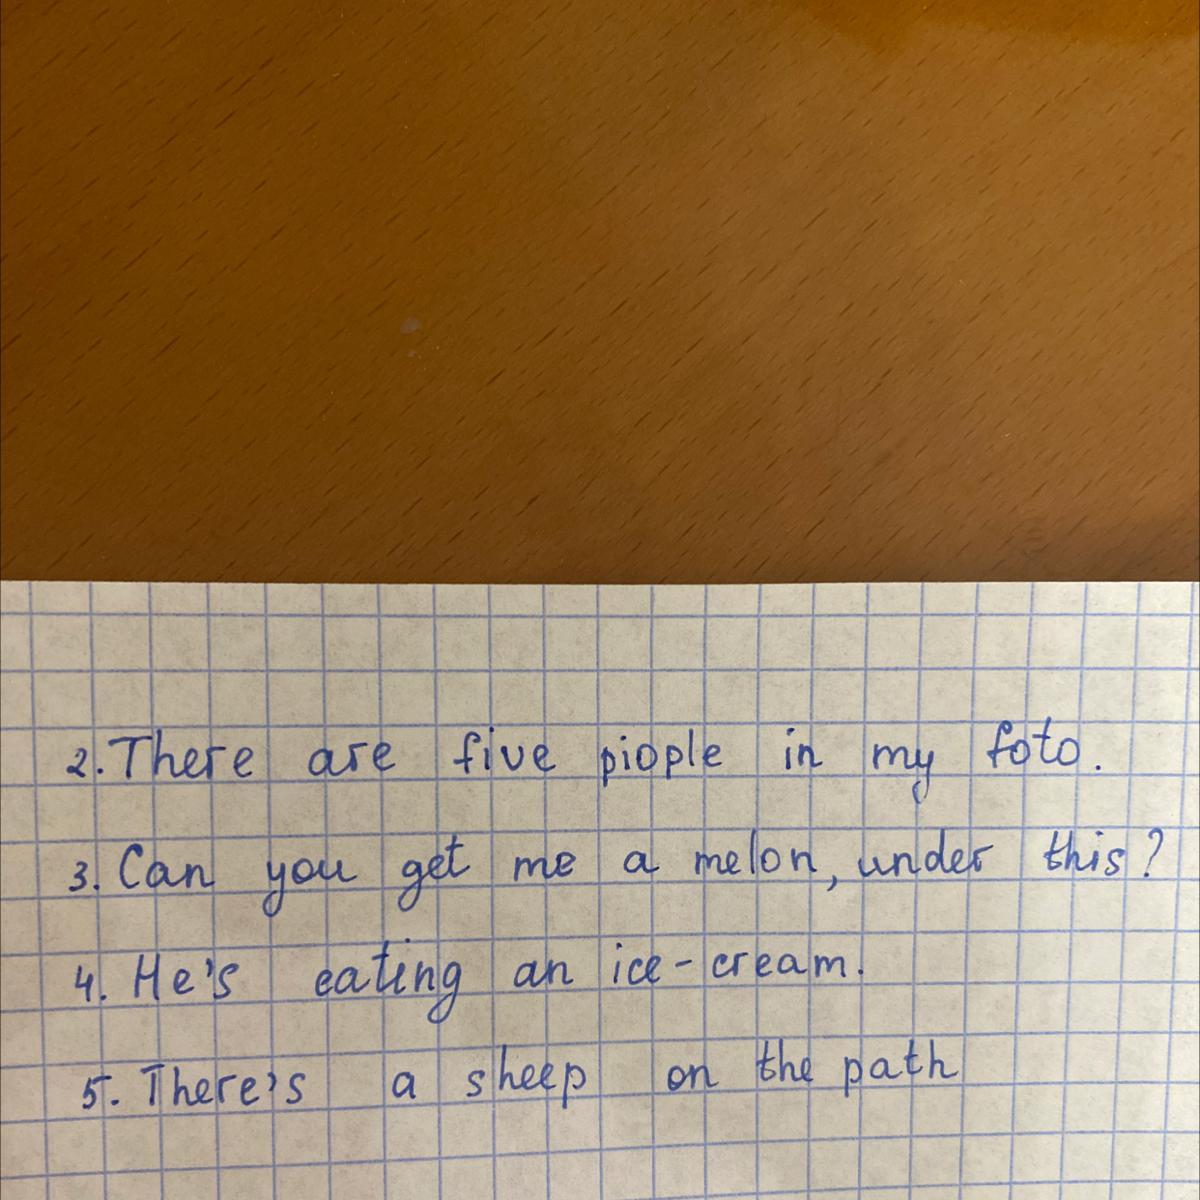 2. There are five piople in my foto.
3. Can you get me a melon, under this?
4. He's eating an ice-cream.
5. There's a sheep on the path